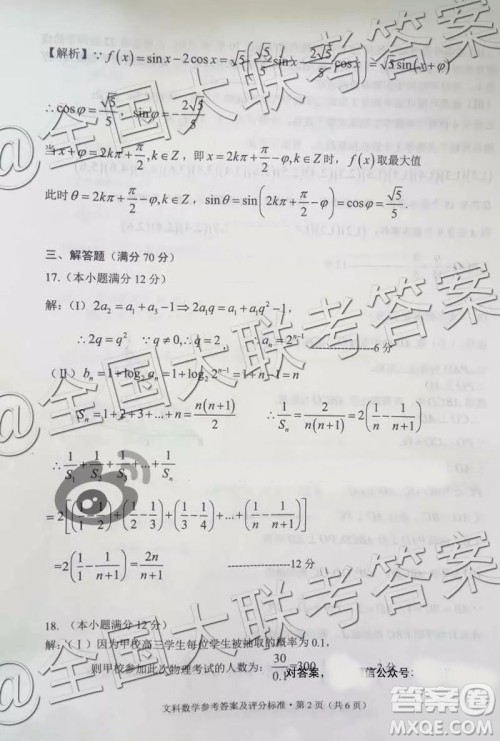 【解析】∵ f(x)=sinx-2cosx=√5(√5/5 sinx-2√5/5 cosx)=√5sin(x+φ)
∴cosφ=√5/5，sinφ=-2√5/5
当x+φ=2kπ+π/2,k∈Z，即x=2kπ+π/2-φ,k∈Z时，f(x)取最大值
此时θ=2kπ+π/2-φ,k∈Z，sinθ=sin(2kπ+π/2-φ)=cosφ=√5/5.
三、解答题（满分70分）
17.（本小题满分12分）
解：（I）2a₂=a₁+a₃-1⇒2a₁q=a₁+a₁q²-1，
∴2q=q² ∵q≠0,∴q=2， ∴aₙ=2ⁿ⁻¹ ------------6分
（II）bₙ=1+log₂aₙ=1+log₂2ⁿ⁻¹=n
Sₙ=1+2+3+…+n=n(n+1)/2 ∴1/Sₙ=2/n(n+1)=2(1/n-1/(n+1))
∴1/S₁+1/S₂+1/S₃+…+1/Sₙ
=2[(1/1-1/2)+(1/2-1/3)+(1/3-1/4)+…+(1/n-1/(n+1))]
=2(1-1/(n+1))=2n/(n+1) ------------12分
18.（本小题满分12分）
解:（I）因为甲校高三学生每位学生被抽取的概率为0.1,
则甲校参加此次物理考试的人数为：30/0.1=300 对答案， 微信公众号：
文科数学参考答案及评分标准·第2页（共6页）
@全国大联考答案
@全国大联考答案
@全国大联考答案